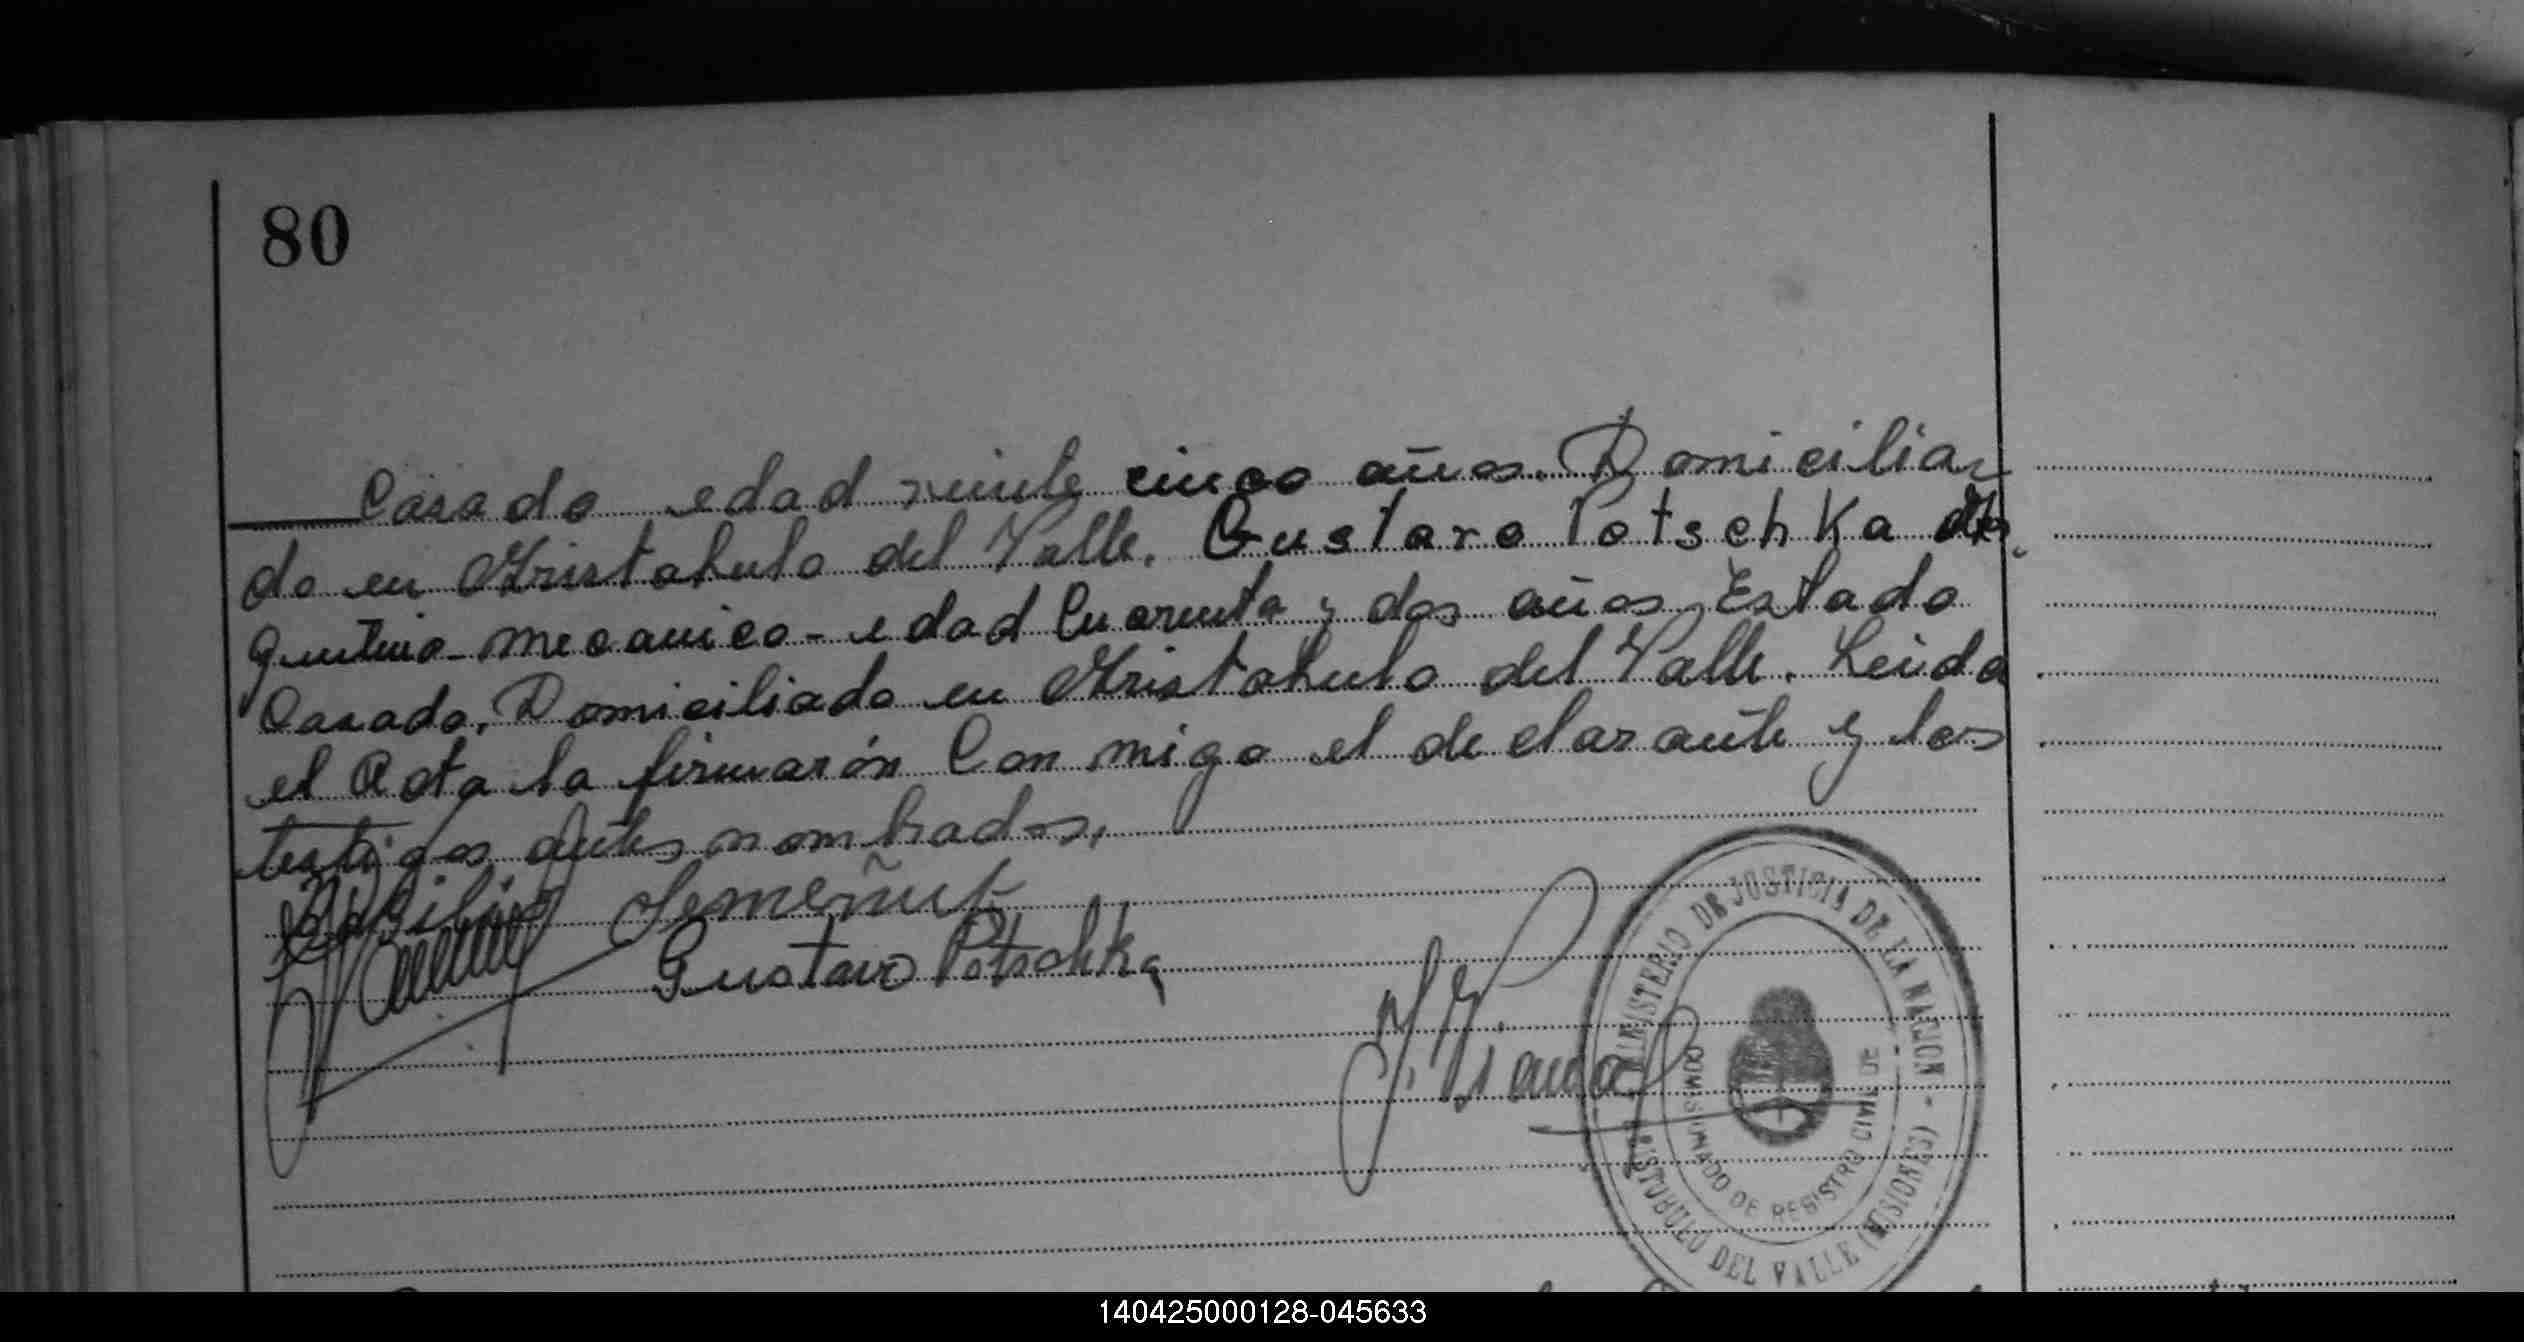 80
Casado edad veinte cinco años. Domicilia
do en Aristobulo del Valle. Gustavo Potschka
gentino mecanico - edad Cuarenta y dos años, Estado
Casado. Domiciliado en Aristobulo del Valle. Leida
el Acta la firmarón Con migo el declarante y los
testigos antes nombrados.
Basilio Semeñuk
Gustavo Potschka
MINISTERIO DE JUSTICIA DE LA NACION -
COMISIONADO DE REGISTRO CIVIL DE
ARISTOBULO DEL VALLE (MISIONES)
140425000128-045633